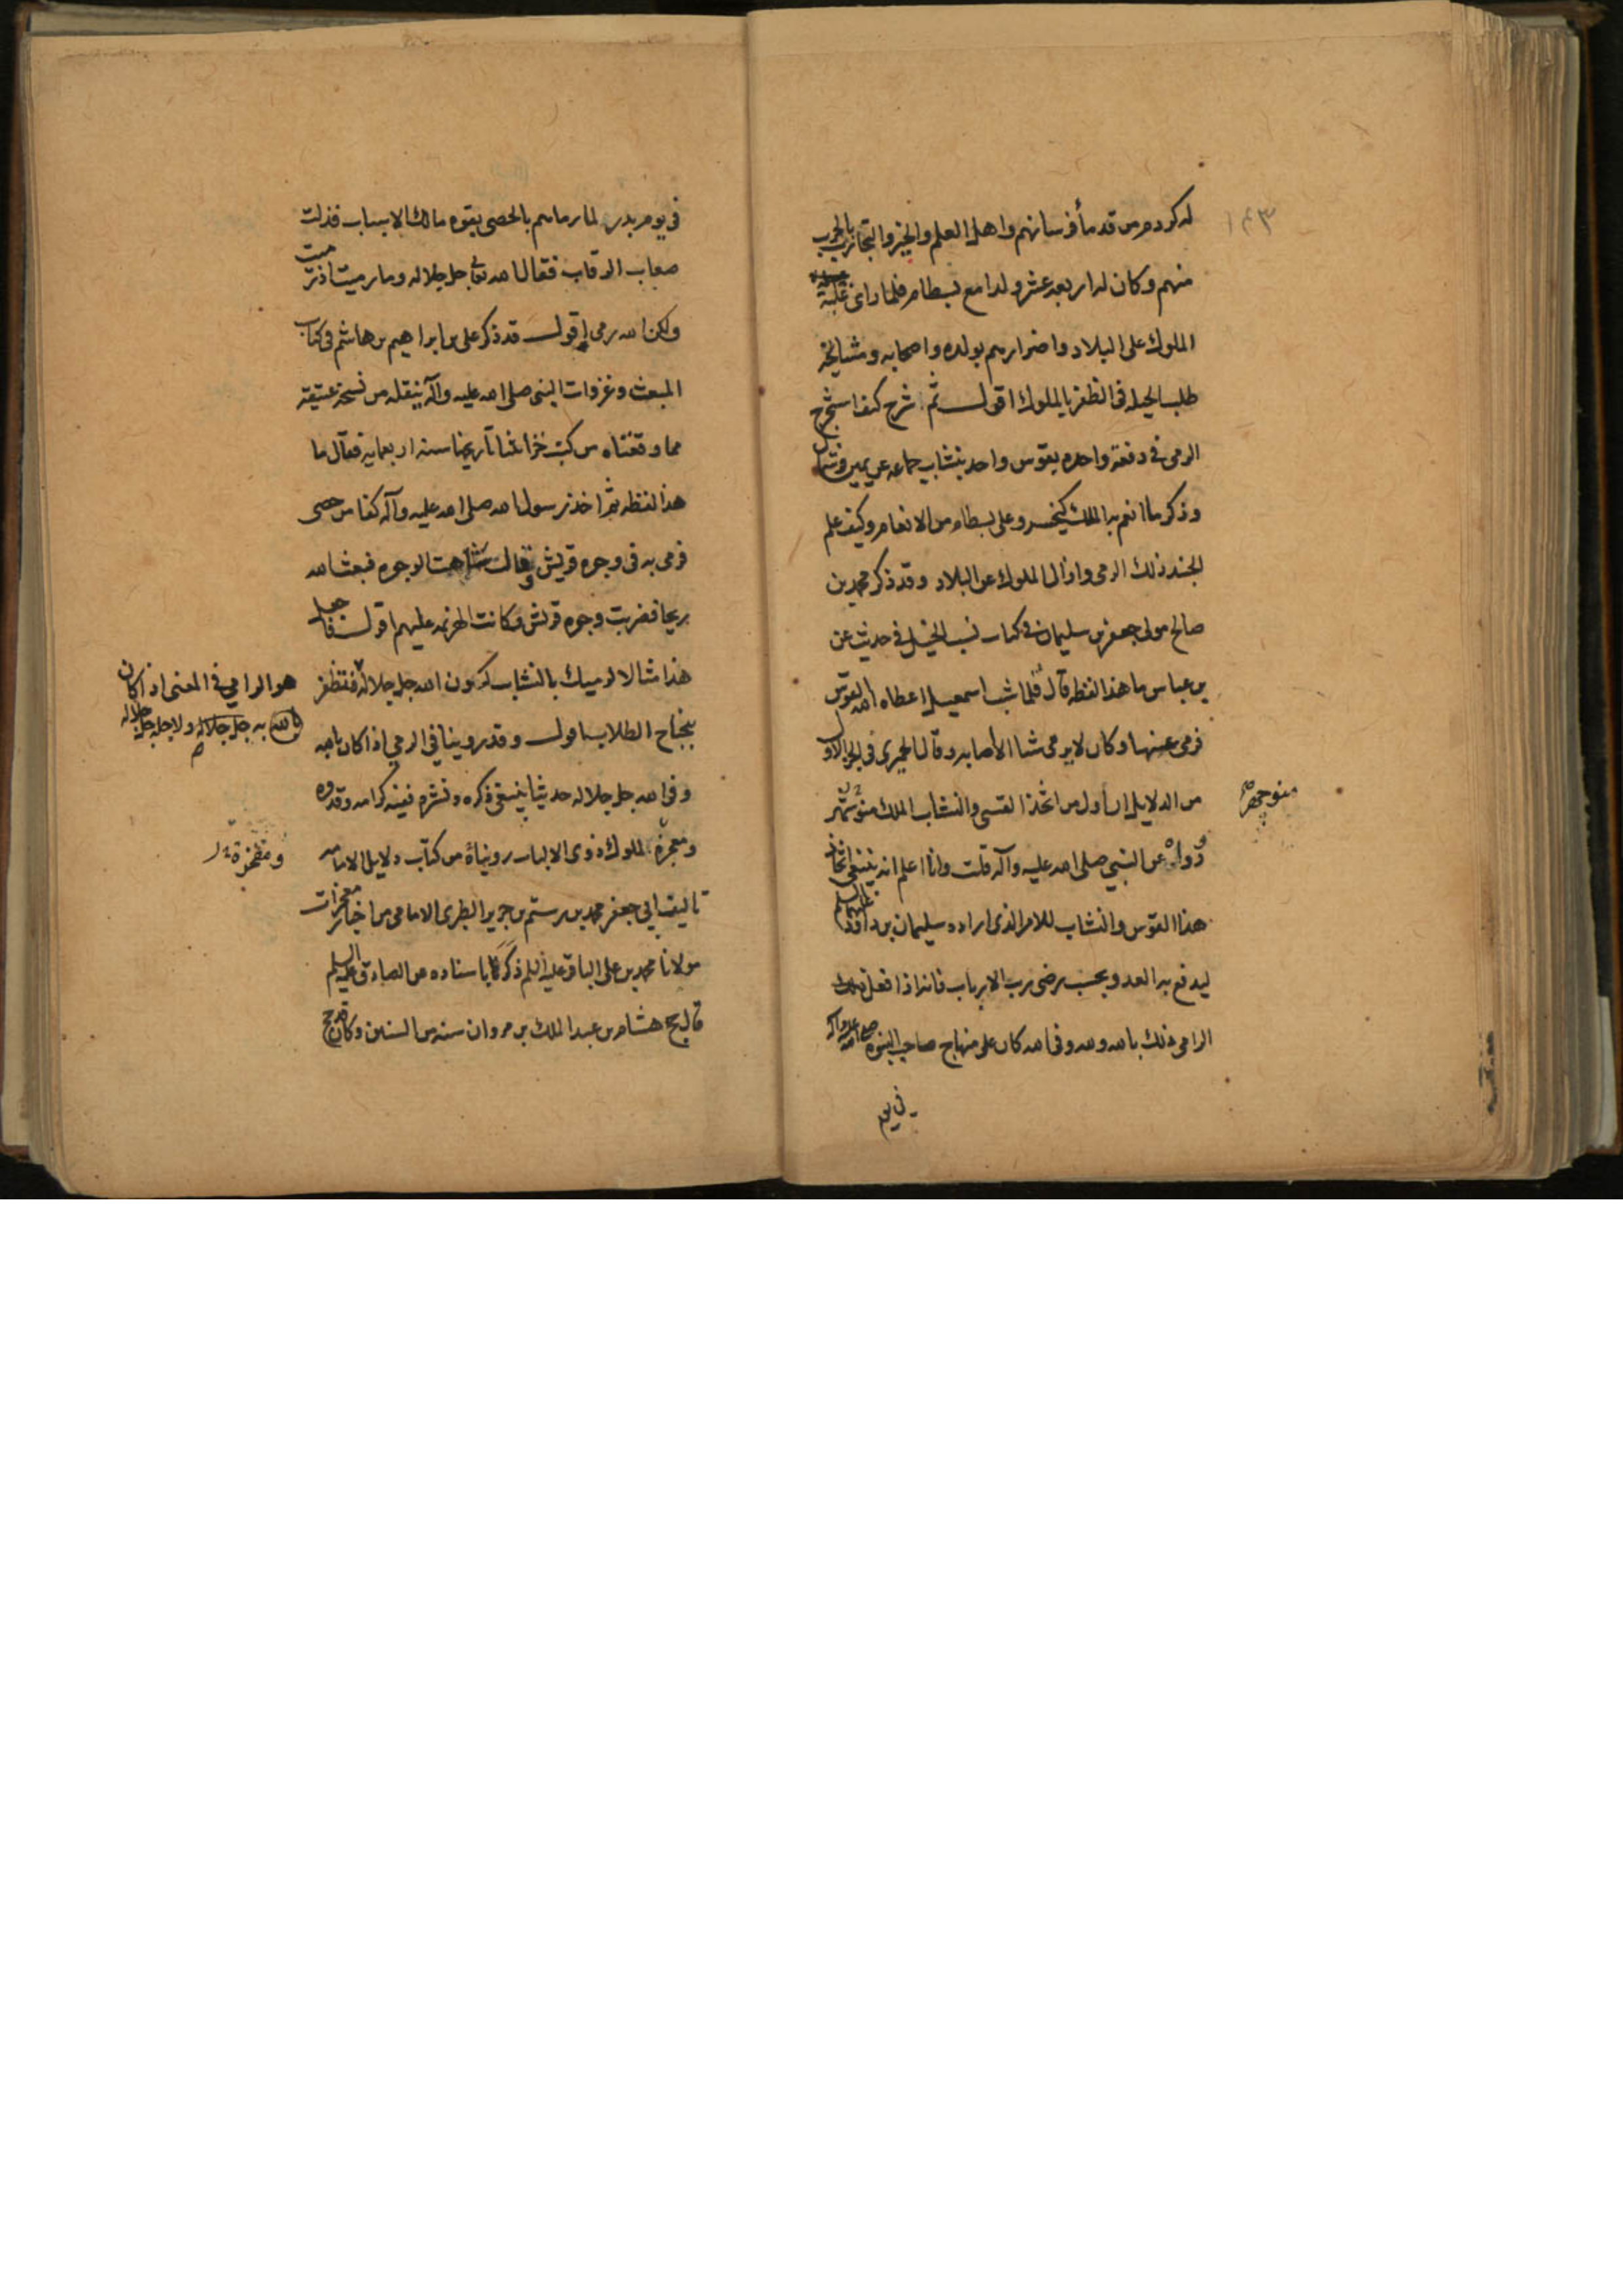 ١٤٣
له كردم من قدماً فرسانهم واهل العلم والخبر والتجارب بالحرب
منهم وكان له اربعه عشر ولدا مع بسطام فلما راى غلبة
الملوك على البلاد واضرارهم بولده واصحابه ومشايخه
طلب الحيله فى الظفر بالملوك اقول ثم شرح كيف استخرج
الرمى فى دفعة واحده بقوس واحد بنشاب جماعه عن يمين وشمال
وذكر ما انعم به الملك كيخسرو على بسطام من الانعام وكيف علم
الجند ذلك الرمى وازال الملوك عن البلاد وقد ذكر محمد بن
صالح مولى جعفر بن سليمان فى كتاب نسب الخيل فى حديث عن
بن عباس ما هذا لفظه قال فلما شب اسمعيل اعطاه الله القوس
فرمى عنها وكان لا يرمى شيا الا اصابه وقال الحميرى فى الجز الاول
من الدلايل ان اول من اتخذ القسى والنشاب الملك منوشهر
منوجهر
رواه عن النبي صلى الله عليه وآله قلت وانا اعلم انه ينبغى اتخاذ
هذا القوس والنشاب للامر الذى اراده سليمان بن داود عليهما السلم
ليدفع به العدو بحسب رضى رب الارباب فانه اذا فعل ذلك
الرامى ذلك بالله ولله وفى الله كان على منهاج صاحب النبوه صلى الله عليه وآله
فى يوم
فى يوم بدر لما رماهم بالحصى بقوه مالك الاسباب فذلت
صعاب الرقاب فقال الله تعالى جل جلاله وما رميت اذ رميت
ولكن الله رمى اقول قد ذكر على بن ابراهيم بن هاشم فى كتاب
المبعث وغزوات النبى صلى الله عليه وآله بنقله من نسخة عتيقة
مما وقفناه من كتب خزانتنا تاريخها سنه اربعمايه فقال ما
هذا لفظه ثم اخذ رسول الله صلى الله عليه وآله كفا من حصى
فرمى به فى وجوه قريش وقال شاهت الوجوه فبعث الله
ريحا فضربت وجوه قريش فكانت الهزيمه عليهم اقول فاجعل
هذا مثالا لرميك بالنشاب كون الله جل جلاله فتظفر
هو الرامي في المعنى اذ كان
بالله به جل جلاله ولاجله جل جلاله
بنجاح الطلاب اقول وقد روينا في الرمي اذا كان بالله
وفى الله جل جلاله حديثا ينبغى ذكره ونشره ففيه كرامه وقدوه
ومعجزة للملوك ذوى الالباب رويناه من كتاب دلايل الامامه
تاليف ابي جعفر محمد بن رستم بن جرير الطبرى الامامى من اخبار معجزات
مولانا محمد بن على الباقر عليه السلم ذكره باسناده عن الصادق عليه السلم
قال حج هشام بن عبد الملك بن مروان سنه من السنين وكان قد حج